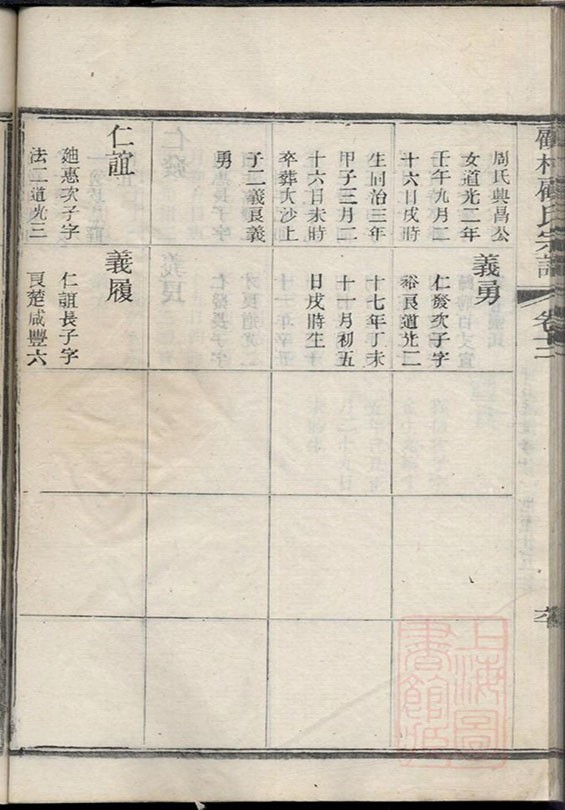 顧村顧氏宗譜
卷十二
周氏興昌公
女道光二年
壬午九月二
十六日戌時
生同治三年
甲子三月二
十六日未時
卒葬大沙上
子二義良義
勇
義勇
仁發次子字
裕良道光二
十七年丁未
十一月初五
日戌時生
仁誼
廸惠次子字
法二道光三
義履
仁誼長子字
良楚咸豐六
上海圖書館藏